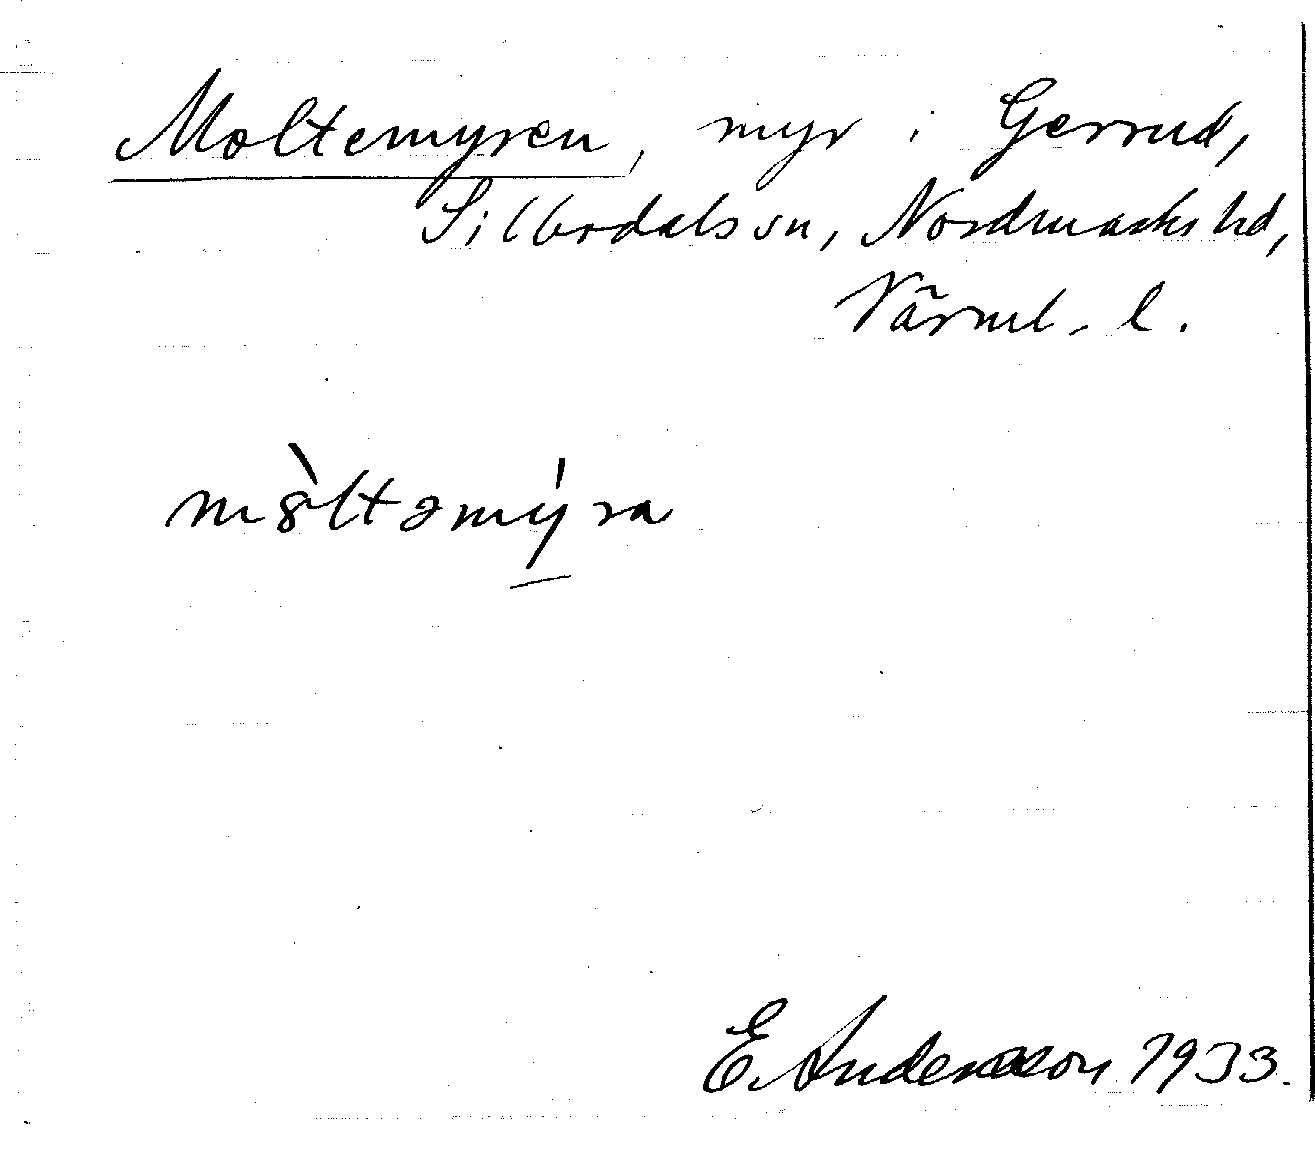 Moltemyren, myr i Gerrud,
Silbodals sn, Nordmarks hd,
Värml. l.
mòltəmy̍ra
E. Andersson 1933.